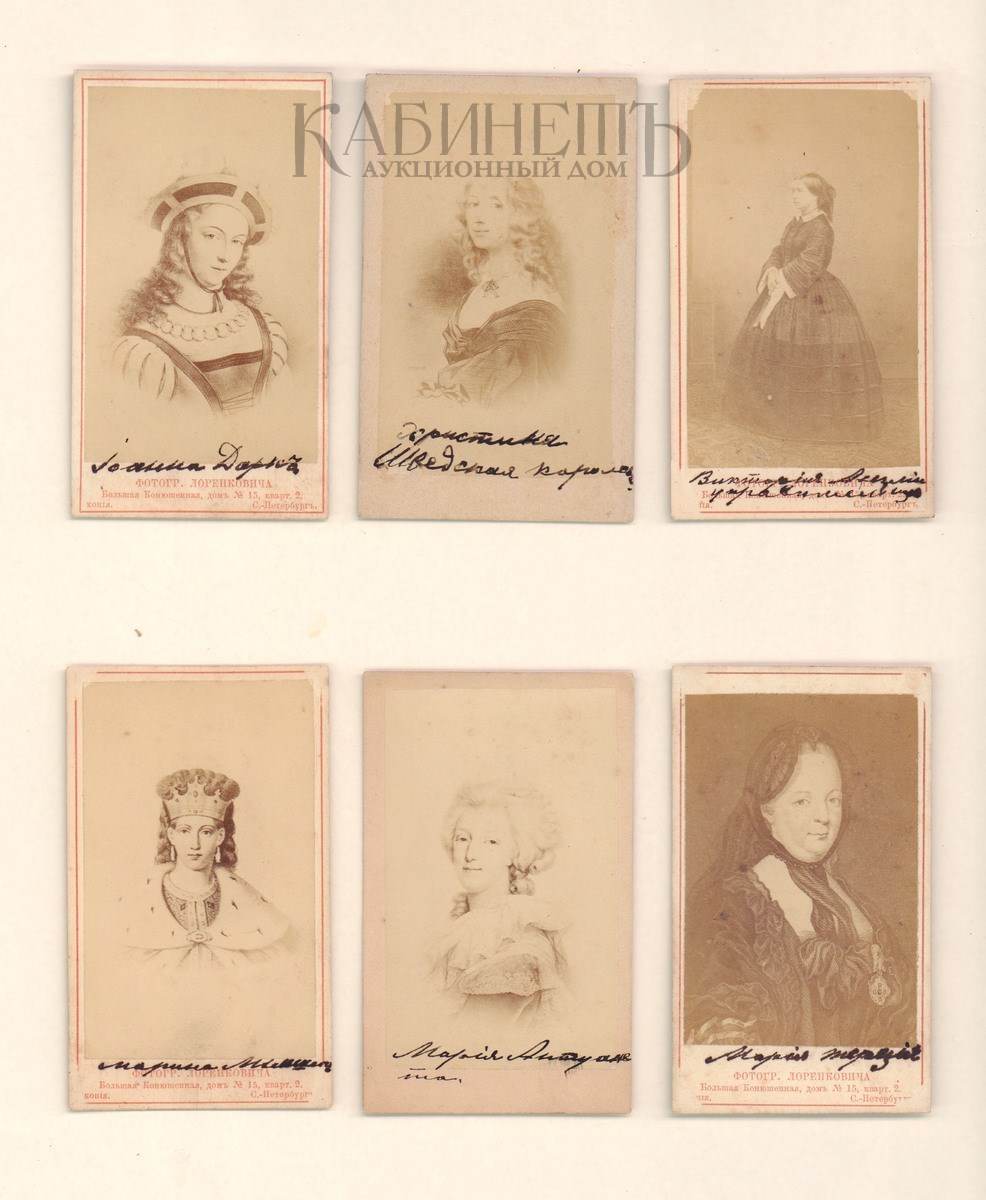 КАБИНЕТЪ
АУКЦИОННЫЙ ДОМ
Іоанна Даркъ
ФОТОГР. ЛОРЕНКОВИЧА
Большая Конюшенная, домъ № 15, кварт. 2.
копія. С.-Петербургъ.
Христина
Шведская королев
Виктория
С.-Петербургъ.
Марина Мнишекъ
ФОТОГР. ЛОРЕНКОВИЧА
Большая Конюшенная, домъ № 15, кварт. 2.
копія. С.-Петербург
Марія Антуане
та.
Марія Терезія
ФОТОГР. ЛОРЕНКОВИЧА
Большая Конюшенная, домъ № 15, кварт. 2.
ія. С.-Петербу